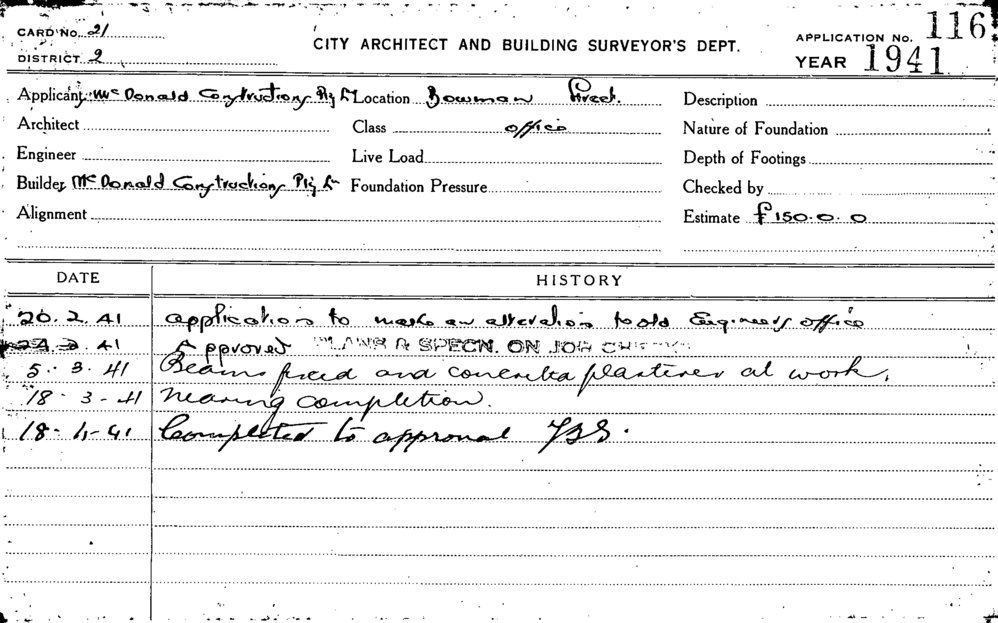 CARD No. 21
DISTRICT 2
CITY ARCHITECT AND BUILDING SURVEYOR'S DEPT.
APPLICATION No. 116
YEAR 1941
Applicant McDonald Constructions Pty Location Bowman Street. Description
Architect Class office Nature of Foundation
Engineer Live Load Depth of Footings
Builder McDonald Constructions Pty Foundation Pressure Checked by
Alignment Estimate £150.0.0
DATE HISTORY
20.2.41 application to make an alteration to old Engineers office
.41 Approved PLANS & SPECN. ON JOB
5.3.41 Beams fixed and concreted plasterer at work.
18-3-41 Nearing completion.
18-4-41 Completed to approval